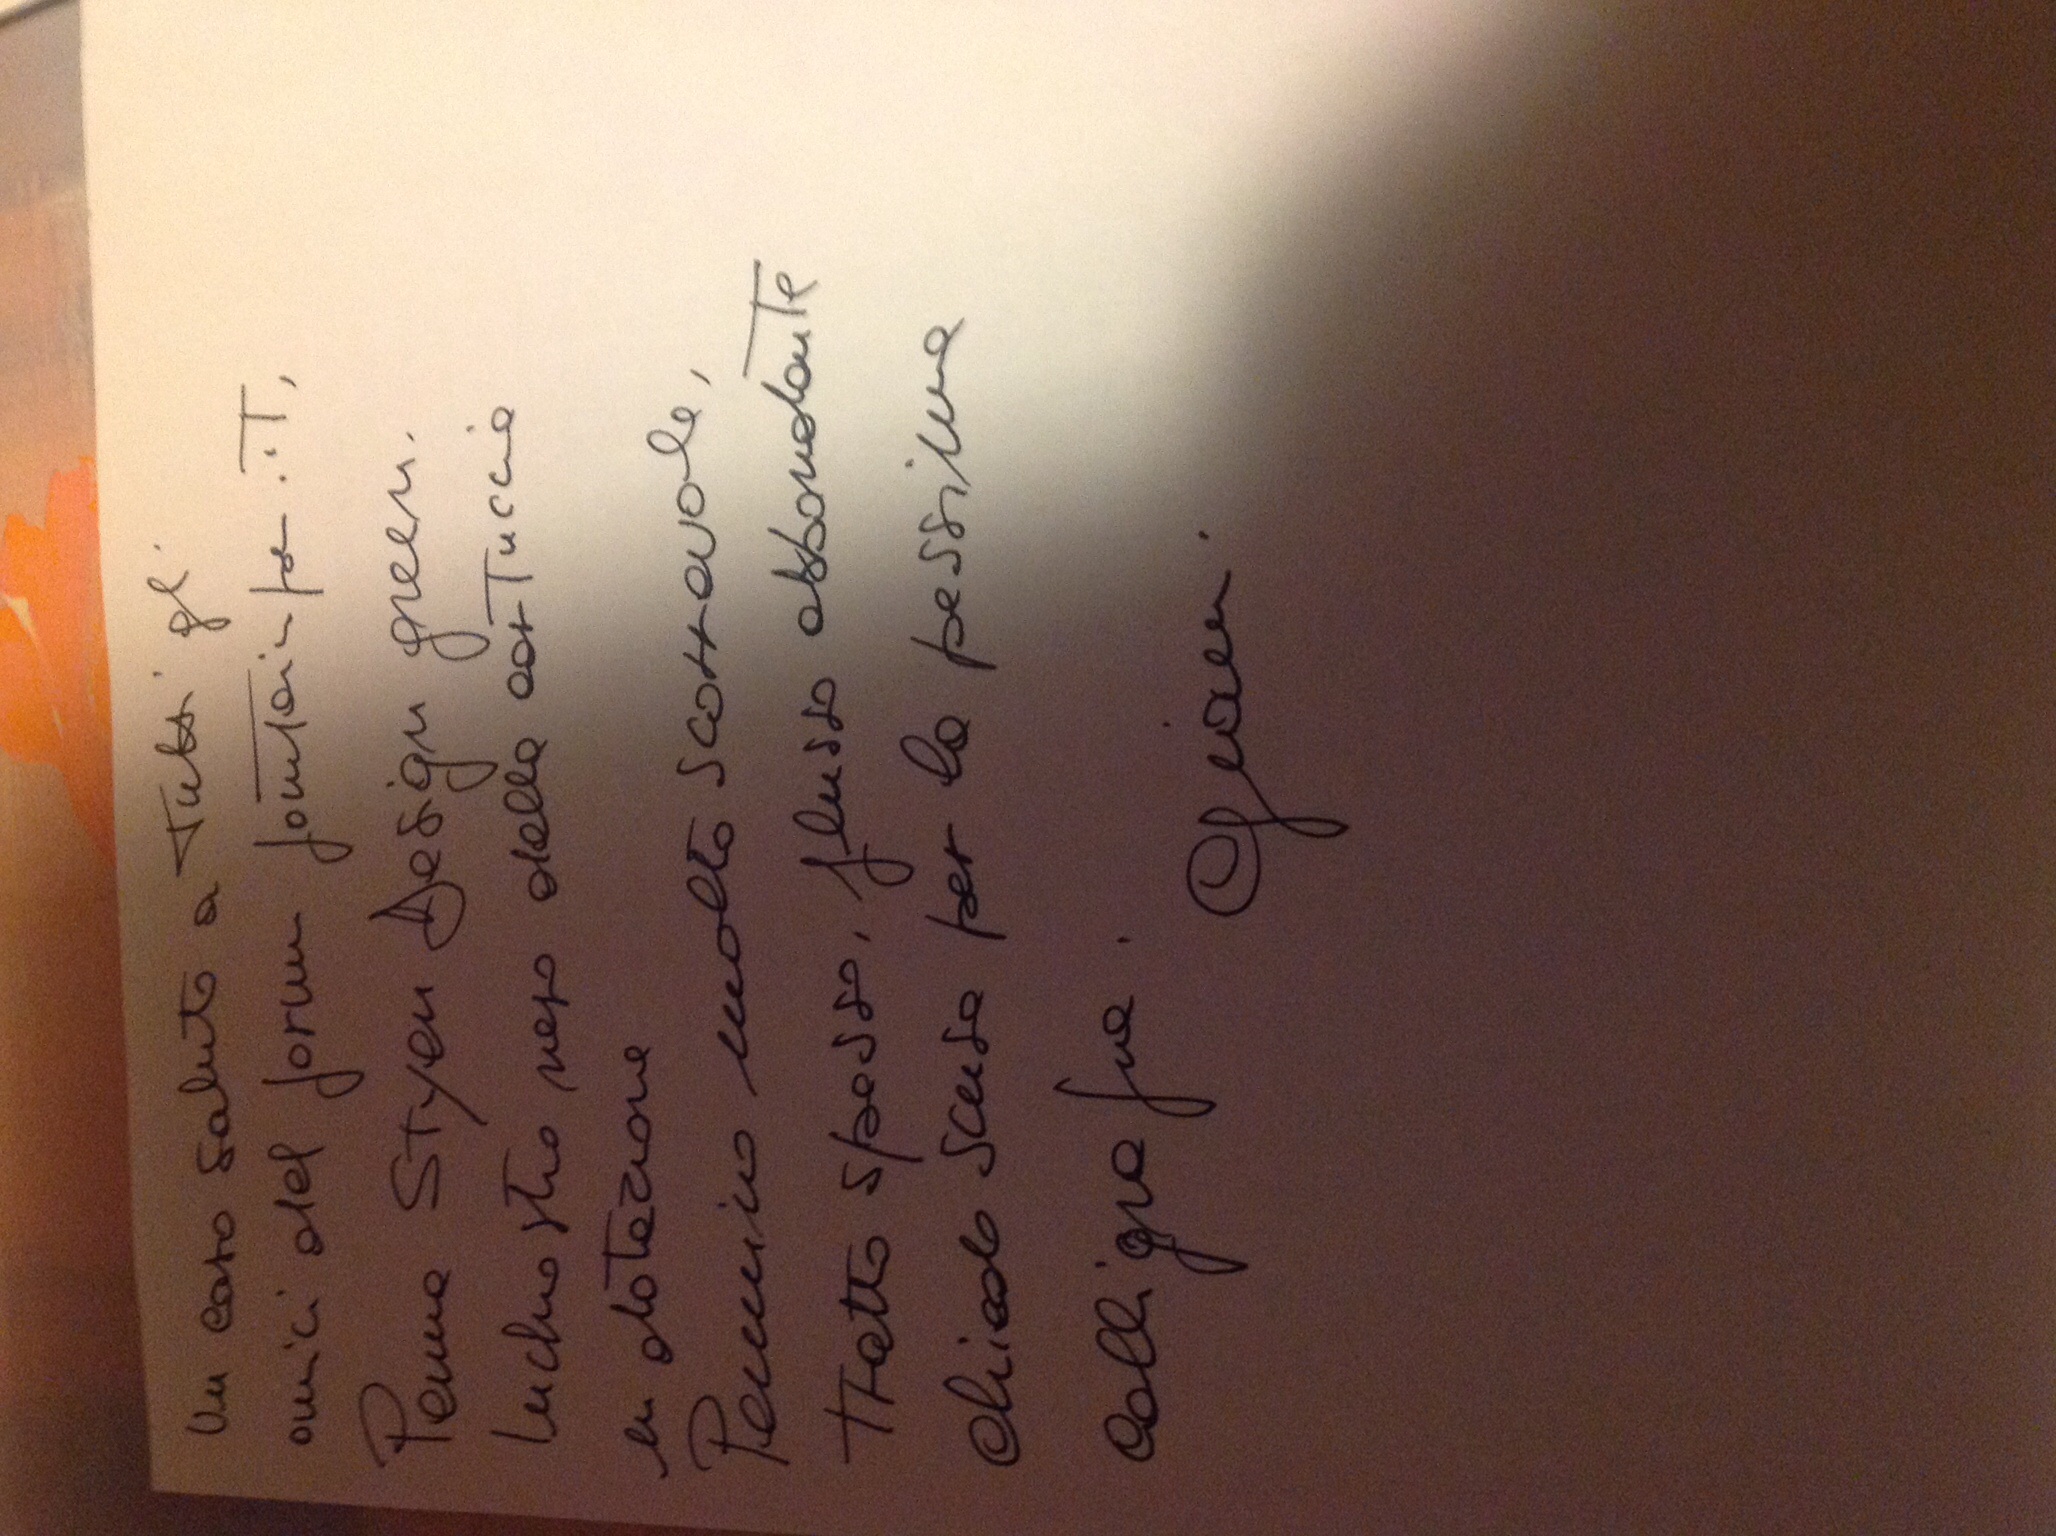 Un caro saluto a Tutti gl.
amici del forum fountainpen.it,
Penna Styen Design green.
Inchiostro nero della cartuccia
in dotazione
Pennino molto scorrevole,
tratto spesso, flusso abbondante
chiedo scusa per la pessima
calligrafia.